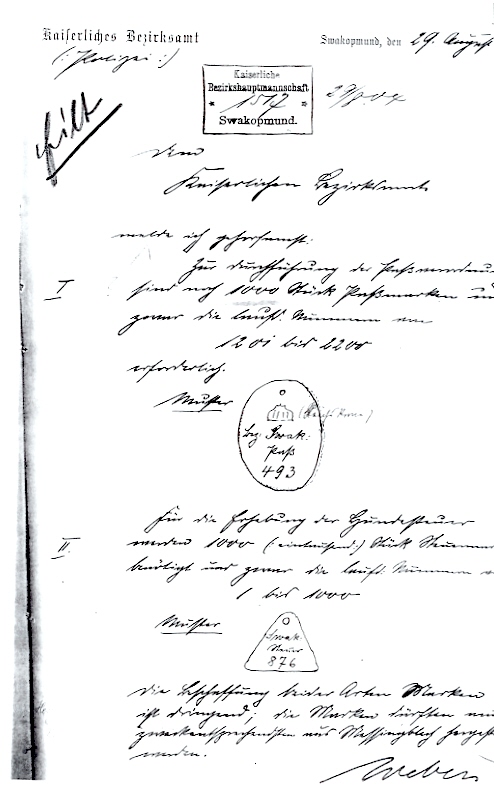 Kaiserliches Bezirksamt
Swakopmund, den 29. August
(: Polizei :)
Kaiserliche
Bezirkshauptmannschaft
* 1517 *
Swakopmund.
29/8 04
Eilt
Dem
Kaiserlichen Bezirksamt
melde ich gehorsamst:
I
Zur Durchführung der
sind noch 1000 Stück Paßmarken und
zwar die laufd. Nummern von
1201 bis 2200
erforderlich.
Muster
Bez. Swak.
Paß
493
II.
Für die Erhebung der Hundesteuer
werden 1000 (: eintausend :) Stück
benötigt und zwar die laufd. Nummern
1 bis 1000
Muster
Swak.
Steuer
876
Die Beschaffung beider Arten Marken
ist dringend; die Marken dürften
zweckentsprechendsten aus Messingblech
werden.
Weber